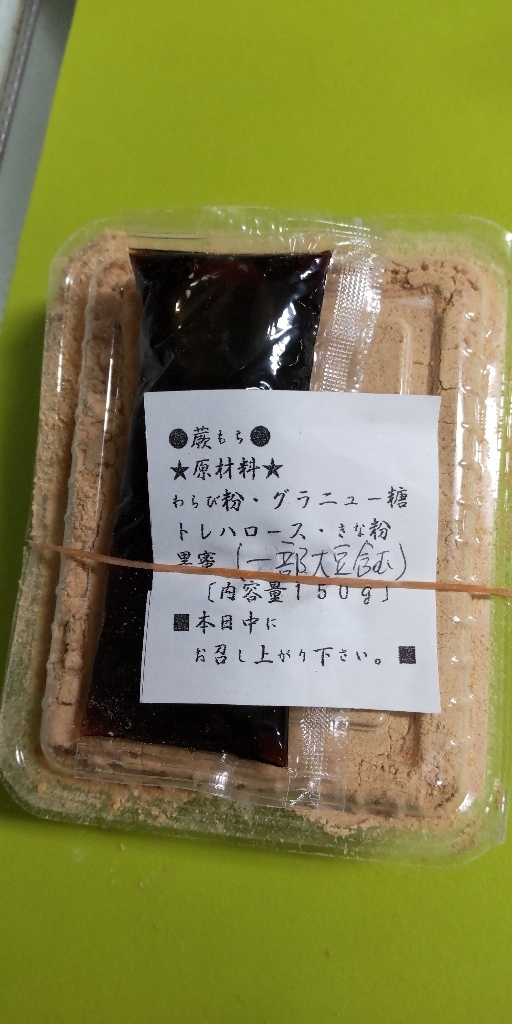 ●蕨もち●
★原材料★
わらび粉・グラニュー糖
トレハロース・きな粉
黒蜜(一部大豆含む)
〔内容量150g〕
■本日中に
お召し上がり下さい。■